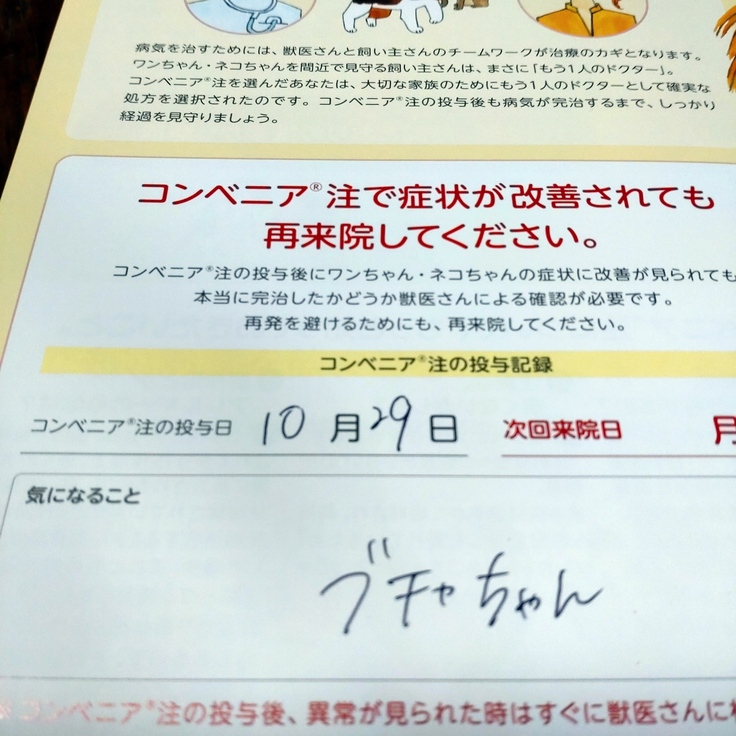 病気を治すためには、獣医さんと飼い主さんのチームワークが治療のカギとなります。
ワンちゃん・ネコちゃんを間近で見守る飼い主さんは、まさに「もう1人のドクター」。
コンベニア®注を選んだあなたは、大切な家族のためにもう1人のドクターとして確実な
処方を選択されたのです。コンベニア®注の投与後も病気が完治するまで、しっかり
経過を見守りましょう。
コンベニア®注で症状が改善されても
再来院してください。
コンベニア®注の投与後にワンちゃん・ネコちゃんの症状に改善が見られても
本当に完治したかどうか獣医さんによる確認が必要です。
再発を避けるためにも、再来院してください。
コンベニア®注の投与記録
コンベニア®注の投与日 10月29日 次回来院日 月
気になること
ブチャちゃん
コンベニア®注の投与後、異常が見られた時はすぐに獣医さんに